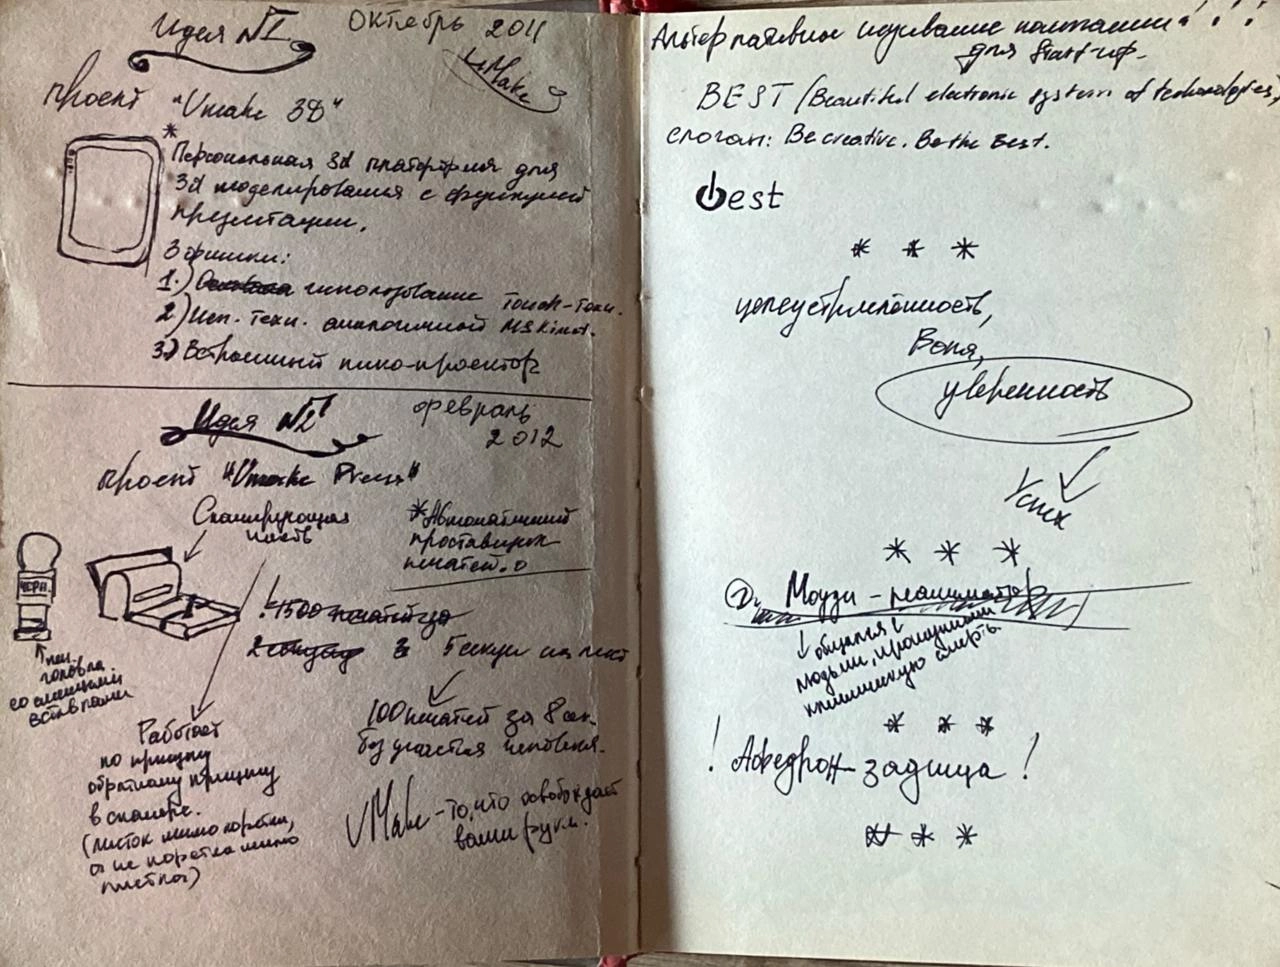 Идея №1
Октябрь 2011
VMake
проект "Vmake 3D"
* Персональная 3d платформа для
3d моделирования с функцией
презентации.
3 фишки:
1.) использование Touch-техн.
2) Исп. техн. аналогичной MS Kinect.
3) Встроенный пико-проектор
Идея №2
февраль
2012
проект "Vmake Press"
Сканирующая
часть
* Автоматический
проставщик
печатей.
ЧЕРН.
! 1500 печатей за
2 секунды 5 секун на лист
печ.
головка
со сменными
вставками
100 печатей за 8 сек.
без участия человека.
Работает
по принципу
обратному принципу
в сканере.
(листок мимо коретки,
а не коретка мимо
листка)
VMake - то, что освобождает
ваши руки.
Альтернативное название компании!!!
для Start-up.
BEST (Beautiful electronic system of technologies)
слоган: Be creative. Be the Best.
best
* * *
целеустремлённость,
Воля,
уверенность
Успех
* * *
Моуди - реаниматор
общался с
людьми, прошедшими
клиническую смерть.
* * *
! Афедрон - задница !
* * *